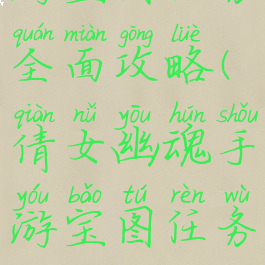 quán miàn gōng lüè
全面攻略(
qiàn nǚ yōu hún shǒu
倩女幽魂手
yóu bǎo tú rèn wù
游宝图任务